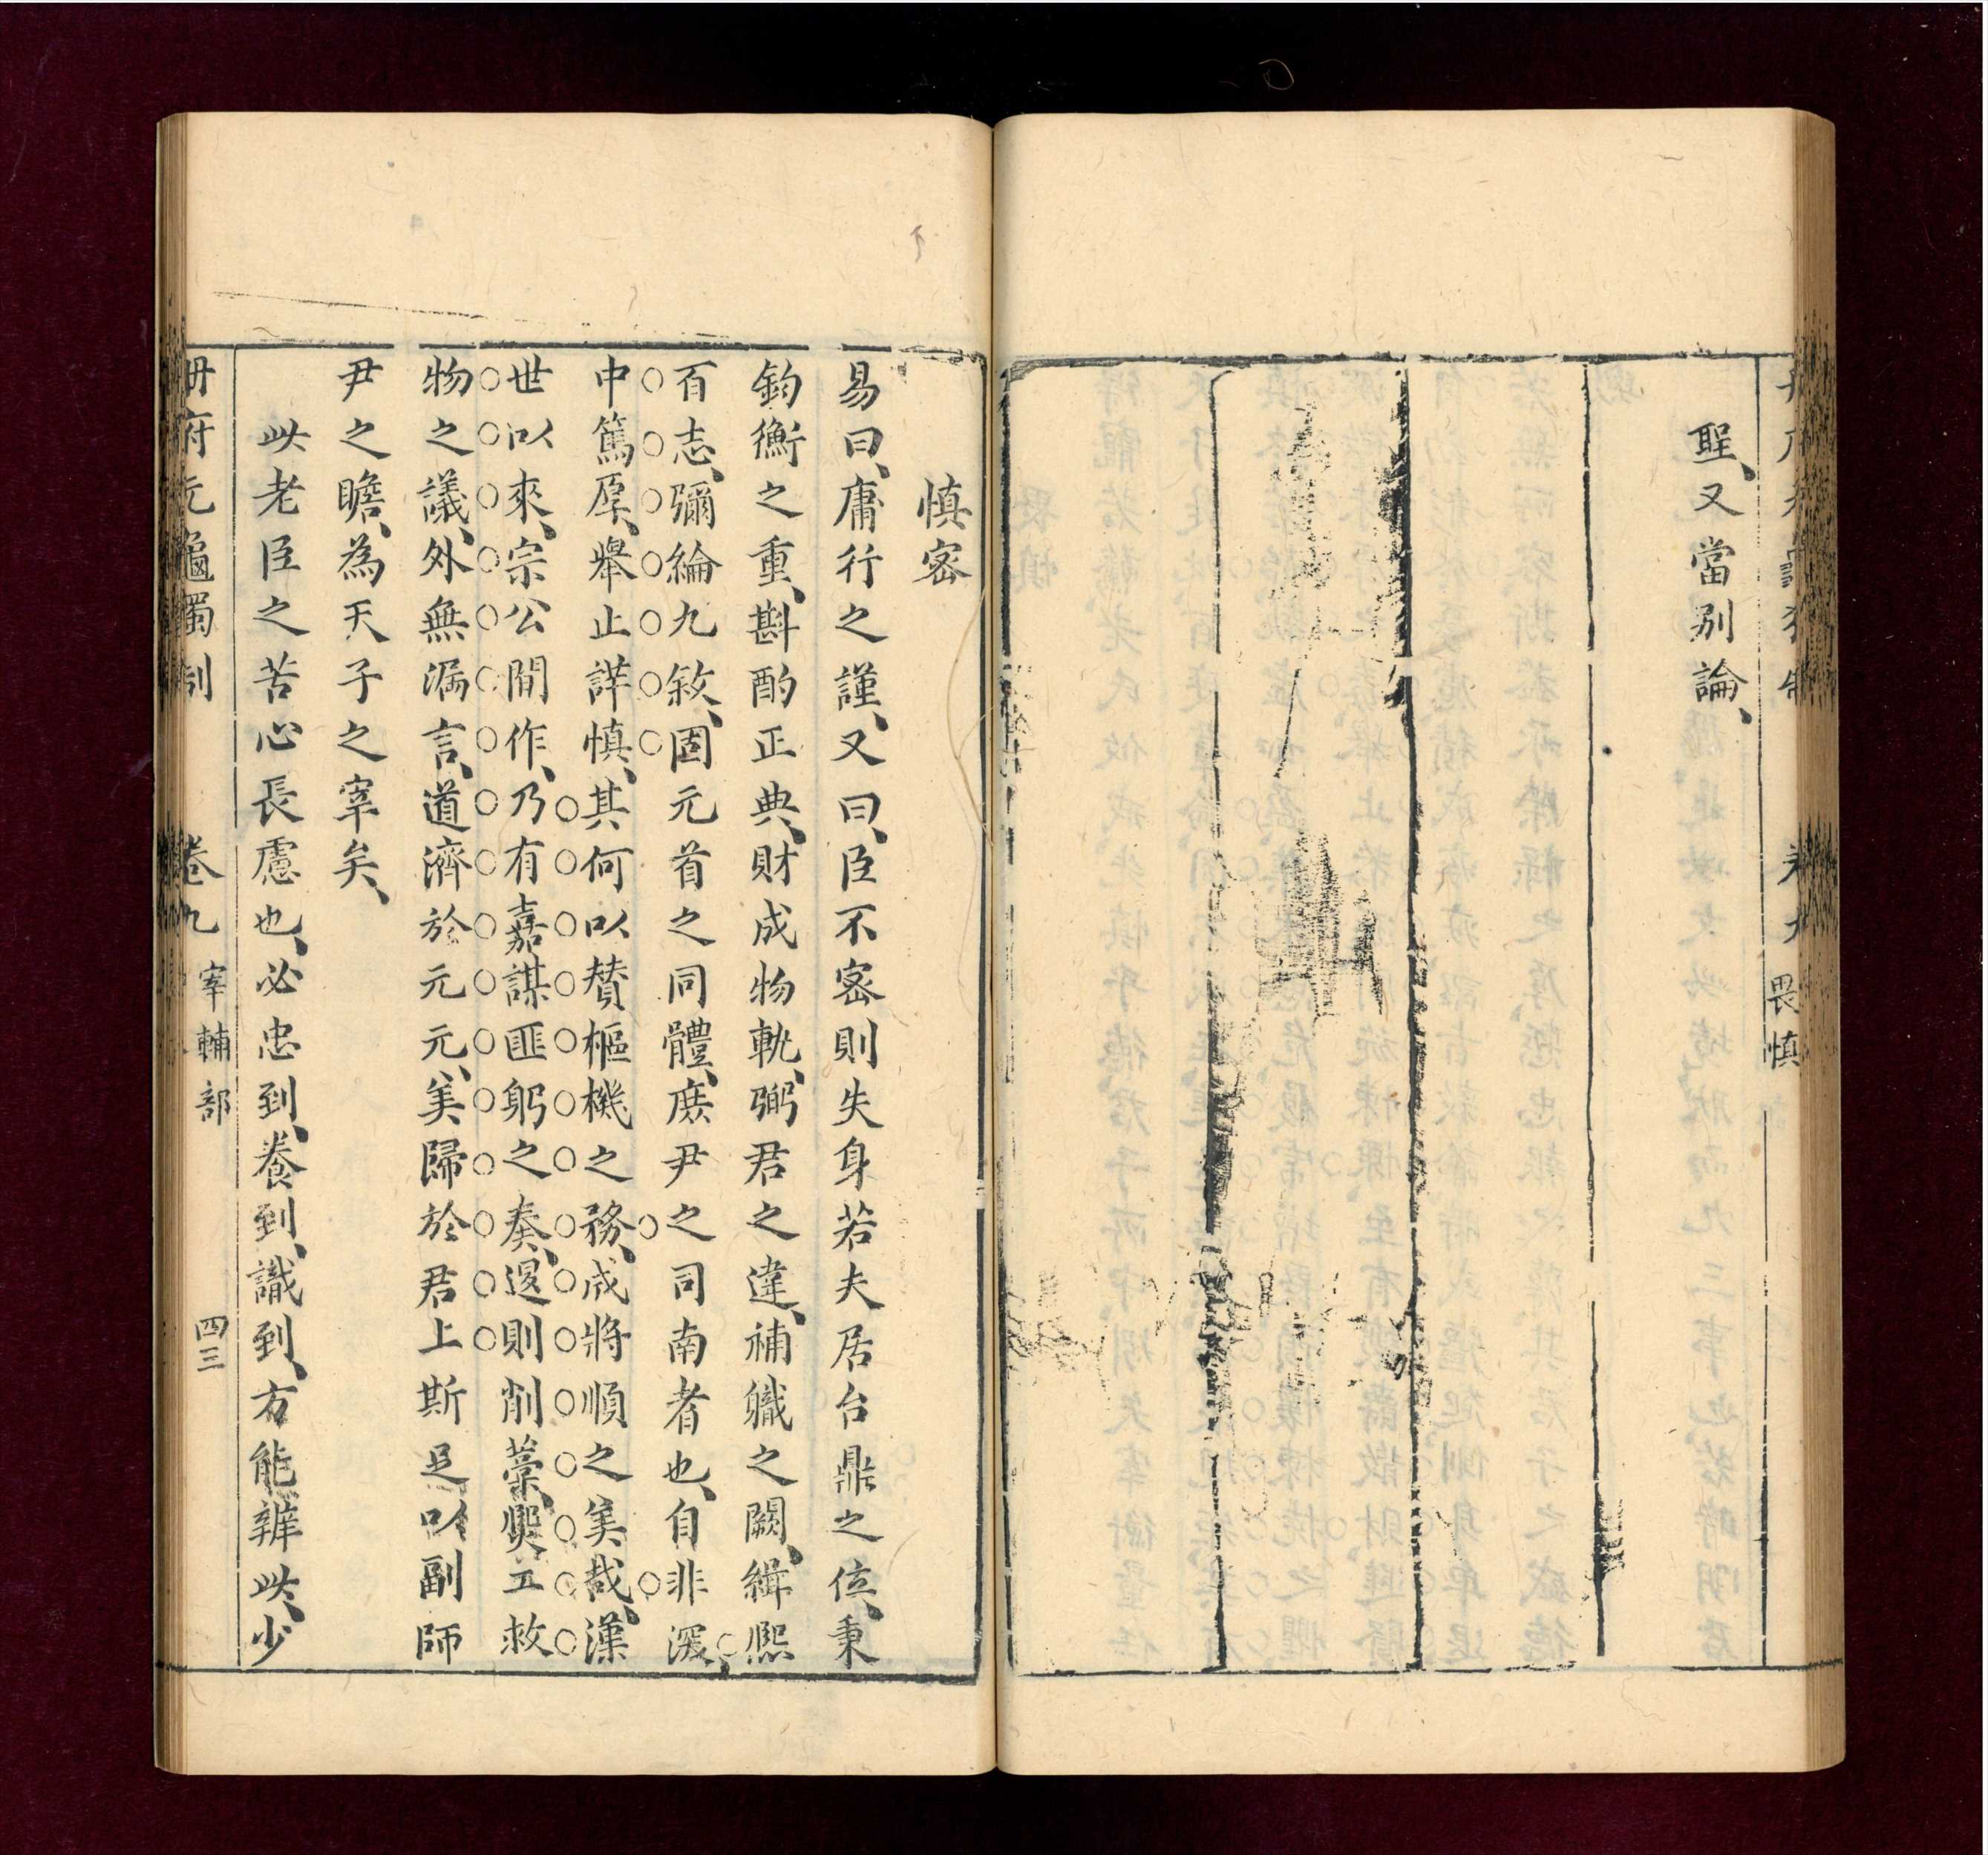 聖、又當别論、
畏慎
慎宻
易曰、庸行之謹、又曰、臣不宻則失身若夫居台鼎之位、秉
鈞衡之重、斟酌正典、財成物軌、弼君之違、補職之闕、緝熙
百志、彌綸九敘、固元首之同體、庶尹之司南者也、自非淵
中篤厚、舉止詳慎、其何以賛樞機之務、成將順之美哉、漢
世以來、宗公間作、乃有嘉謀匪躬之奏、退則削藁、熙工救
物之議、外無漏言、道濟於元元、美歸於君上斯足以副師
尹之瞻、為天子之宰矣、
此老臣之苦心長慮也、必忠到、養到、識到、方能辨此、少
册府元龜獨制 卷九 宰輔部 四三